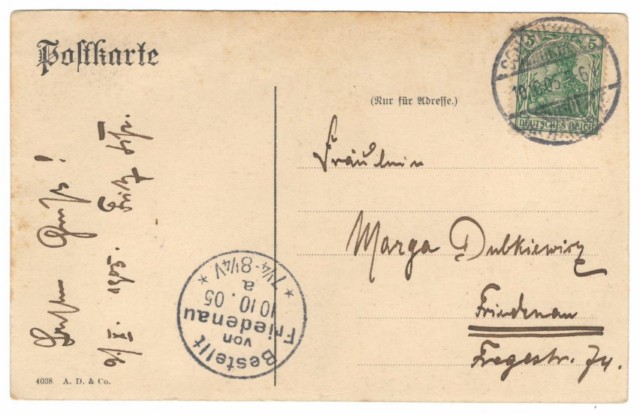 Postkarte
(Nur für Adresse.)
5 5
DEUTSCHES REICH
Fräulein
Marga Dubkiewicz
Friedenau
Fregestr. 74.
Besten Gruß!
9/X. 1905. Fritz
Bestellt
von
Friedenau
10.10.05
a
* 7¼-8¼V *
4038 A. D. & Co.